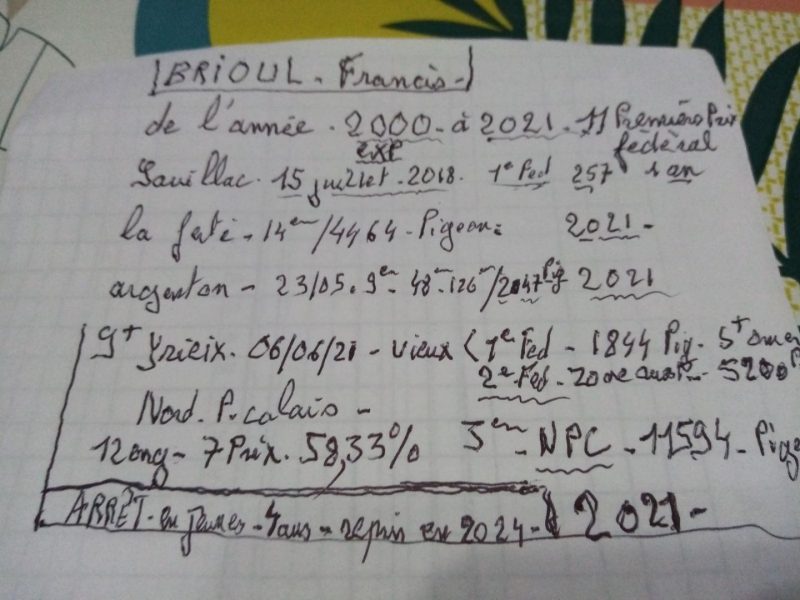 BRIOUL - Francis -
de l'année - 2000 - à 2021 - 11 Premiers Prix
exp fédéral
Souillac - 15 juillet - 2018. 1e Fed 257 1 an
la ferté - 14em/4464 - Pigeons 2021 -
argenton - 23/05. 9em - 48em - 126em/2047 Pig 2021
St Yrieix - 06/06/21 - vieux ( 1er Fed - 1844 Pig - St omer
2e Fed - Zone - 5200 P
Nord - P. calais -
12 eng - 7 Prix - 58,33% 3em - NPC - 11594 - Pige
ARRÊT - en jeunes - 4 ans - repris en 2024 - 2021 -